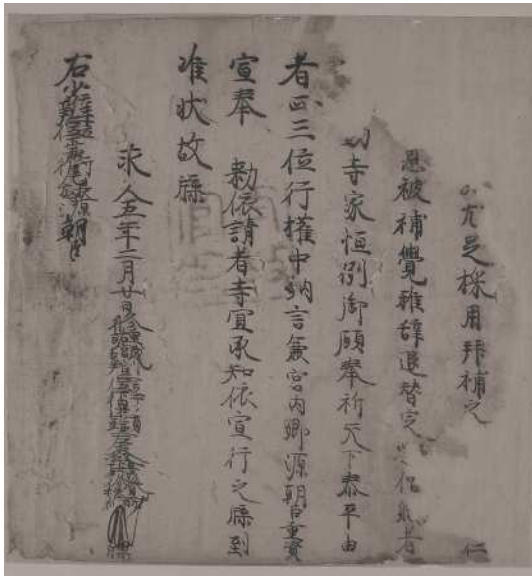 尤足採用拜補之 仁
恩被補覺雅辞退替定
寺家恒例御願奉祈天下泰平由
者正三位行權中納言兼宮内卿源朝臣重資
宣奉 勅依請者寺宜承知依宣行之牒到
准状故牒
永久五年 月廿日 牒
右少 朝臣